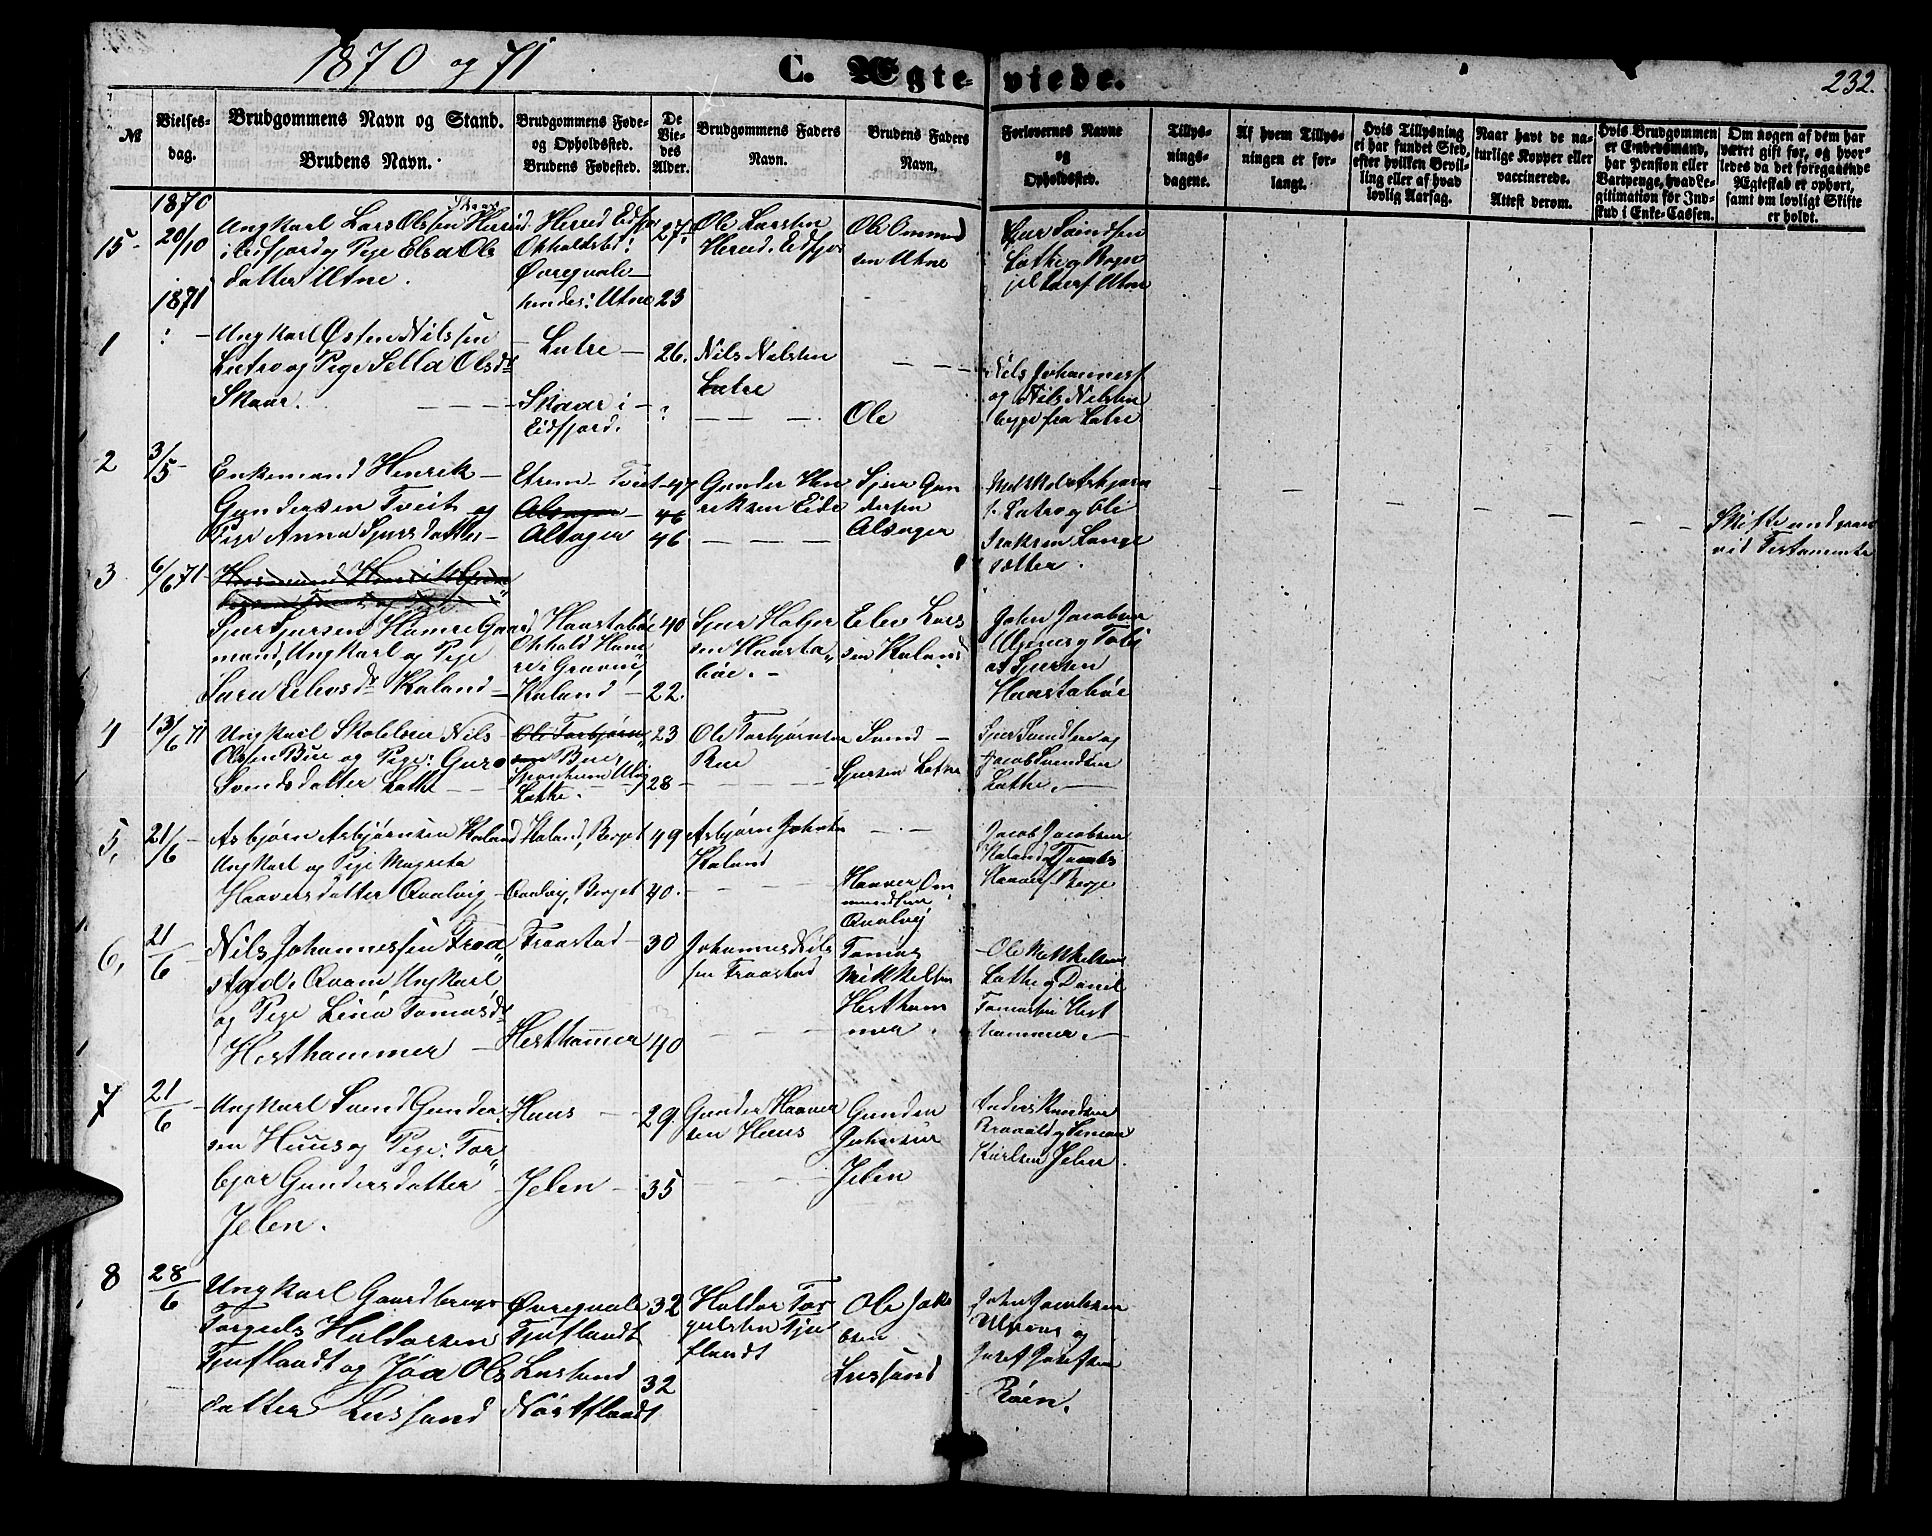 1870 og 71
C. Ægteviede.
232.
№
Vielses-
dag.
Brudgommens Navn og Stand.
Brudens Navn.
Brudgommens Føde-
og Opholdssted.
Brudens Fødested.
De
Vie-
des
Alder.
Brudgommens Faders
Navn.
Brudens Faders
Navn.
Forlovernes Navne
og
Opholdssted.
Tillys-
nings-
dagene.
Af hvem Tillys-
ningen er for-
langt.
Hvis Tillysning
ei har fundet Sted,
efter hvilken Bevil-
ling eller af hvad
lovlig Aarsag.
Naar havt de na-
turlige Kopper eller
vaccinerede.
Attest derom.
Hvis Brudgommen
er Embedsmand,
har Pension eller
Vartpenge, hvad Le-
gitimation for Ind-
skud i Enke-Cassen.
Om nogen af dem har
været gift før, og hvor-
ledes da det foregaaende
Ægteskab er ophørt,
samt om lovligt Skifte
er holdt.
1870
15 20/10
Ungkarl Lars Olssen Hereid
i Eidfjord og Pige Elsa Ols
datter Utne.
Hereid Eidfjor
Opholdsted:
Øvreqvale
hendes: Utne
27
23
Ole Larssen
Hereid. Eidfjor
Ole Ommund
sen Utne
Sjur Svendsen
Lothe og
Utne
1871
1
Ungkarl Østen Nilssen
Lutro og Pige Sella Olsdr
Skaar.
Lutro
Skaar i
Eidfjord.
26.
?
Nils Nielsen
Lutro
Ole
Nils Johannesf
og Nils Nielsen
begge fra Lutro
2 3/5
Enkemand Henrik
Gundersen Tveit og
Pige Anna Sjursdatter
Etrem - Tveit
Alsager
Alsager
47
46
46
Gunder Hen
riksen Eide
Sjur Gun
dersen
Alsager
Lutro og Ole
Isaksen Lange
sætter.
Skifte undgaaet
ved Testamente
3 6/6 71
Sjur Sjursen Hamre Gaard
mand, Ungkarl og Pige
Sara Eilevsdr Kaland
Haastabøe
Ophold Ham
re i Graven,
Kaland
40
22.
Sjur Holjer
sen Haasta
bøe.
Elev Lars
sen Kaland
John Jacobsen
Alpenes og Tobi
as Sjursen
Haastabøe
4 13/6 71
Ungkarl Skolelærer Nils
Olssen Bue og Pige: Guro
Svendsdatter Lothe
Ole Torbjørn
sen Bue,
Sponheim Ulvig
Lothe.
23
28
Ole Torbjørnsen
Bue
Svend
Sjursen Lothe
Sjur Svendsen og
Jacob Svendsen
Lothe.
5, 21/6
Asbjørn Asbjørnsen Kaland
Ungkarl og Pige Magreta
Haaversdatter Qvalvig
Kaland, Berget
Qvalvig, Berget
49
40.
Asbjørn Johns
Kaland
Haaver Om
mundsen
Qvalvig
Jacob Jacobsen
Kaland og Tomas
Haaversf Berge
6, 21/6
Nils Johannessen Traa
stad. Qvam Ungkarl
og Pige Lina Tomasdr
Hesthammer
Traastad
Hesthamer
30
40
Johannes Nils
sen Traastad
Tomas
Mikkelsen
Hestham
mer.
Ole Mikkelsen
Lothe og Daniel
Tomassen Hest
hammer.
7 21/6
Ungkarl Svend Gunder
sen Huus og Pige: Tor
bjør Gundersdatter
Jelen.
Huus
Jelen
29
35
Gunder Haaver
sen Huus
Gunder
Johnsen
Jelen
Anders Knudsen
Bravold og Simon
Karlsen Jelen.
8 28/6
Ungkarl Gaardbruger
Torgeils Haldorsen
Tjuflandt og Jøa Ols
datter Lussand
Øvreqvale
Tjuflandt
Lussand
Nørtflandt
32
32
Haldor Tor
geilsen Tju
flandt
Ole Jako
bsen
Lussand
John Jacobsen
Alpenes og
Josef Josefsen
Røen.